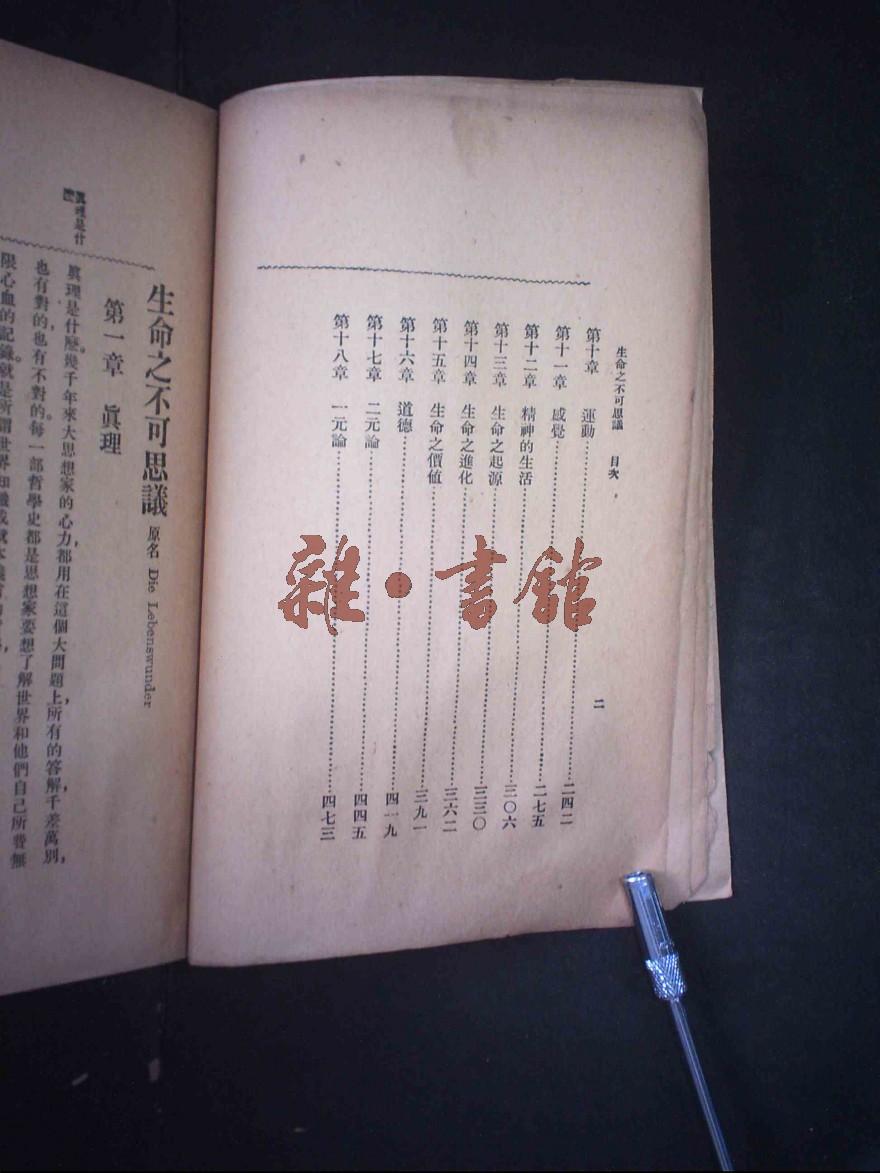 生命之不可思議　目次　二
第十章　運動……二四二
第十一章　感覺……二七五
第十二章　精神的生活……三〇六
第十三章　生命之起源……三三〇
第十四章　生命之進化……三六二
第十五章　生命之價值……三九一
第十六章　道德……四一九
第十七章　二元論……四四五
第十八章　一元論……四七三
雜·書館
生命之不可思議 原名 Die Lebenswunder
第一章　眞理
眞理是什麼
眞理是什麼。幾千年來大思想家的心力，都用在這個大問題上，所有的答解，千差萬別，
也有對的，也有不對的。每一部哲學史都是思想家要想了解世界和他們自己所費無
限心血的記錄。